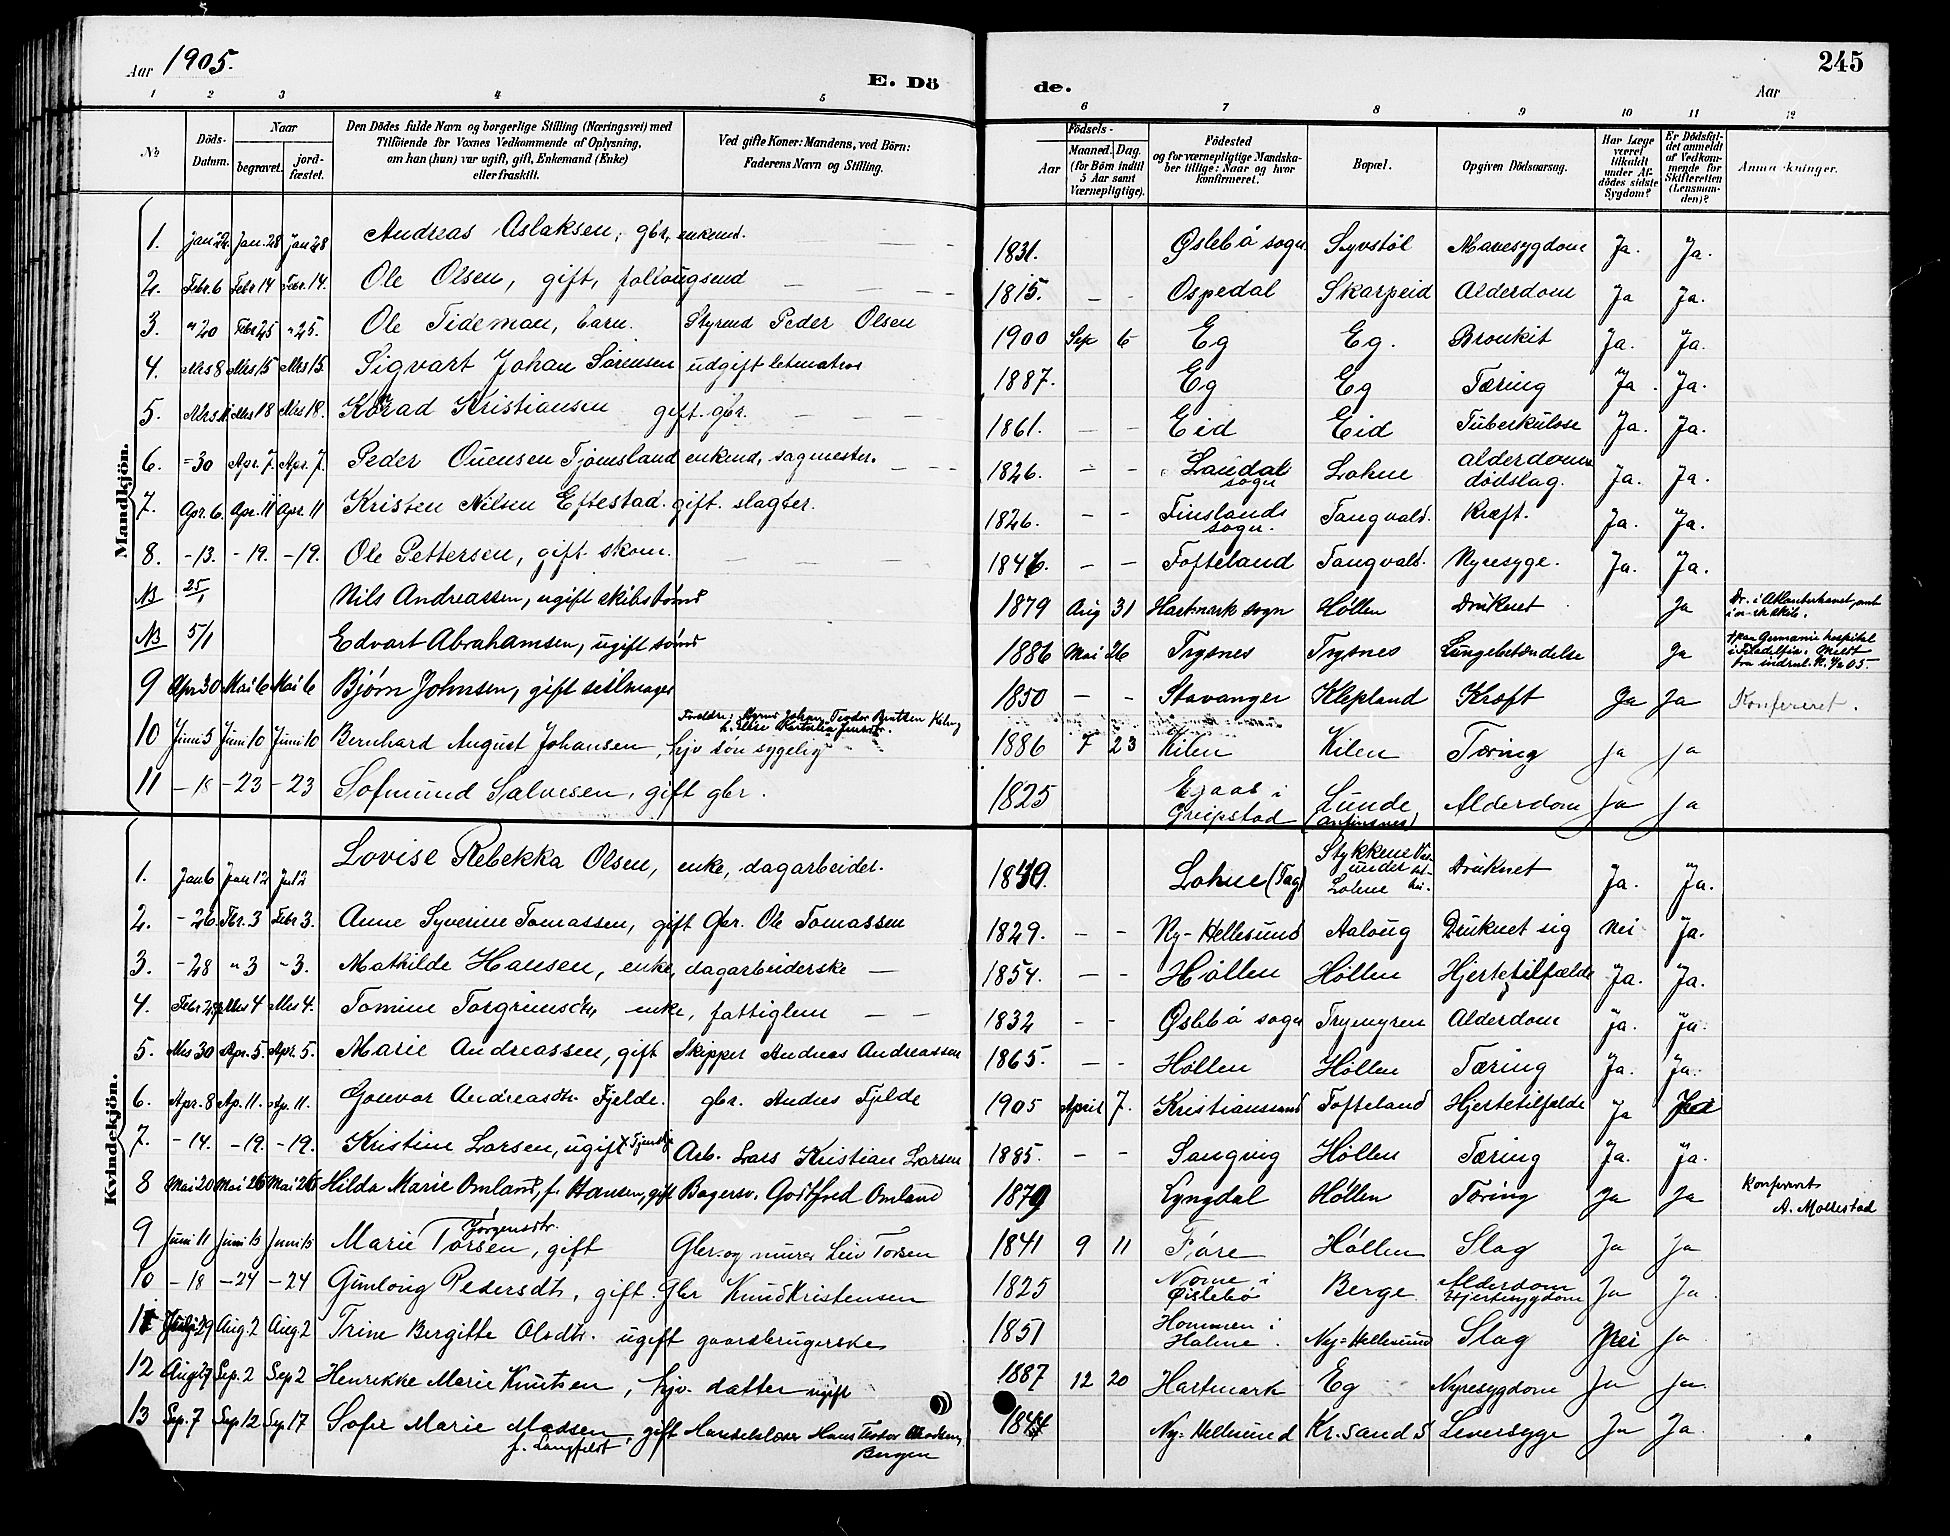 Aar 1905.
E. Dö
de.
245
Aar
1 2 3 4 5 6 7 8 9 10 11 12
No
Döds-Datum.
Naar
begravet.
jord-fæstet.
Den Dödes fulde Navn og borgerlige Stilling (Næringsvei) med
Tilföiende for Voxnes Vedkommende af Oplysning,
om han (hun) var ugift, gift, Enkemand (Enke)
eller fraskilt.
Ved gifte Koner: Mandens, ved Börn:
Faderens Navn og Stilling.
Födsels-
Aar
Maaned. Dag.
(for Börn indtil
5 Aar samt
Værnepligtige).
Födested
og for værnepligtige Mandska-
ber tillige: Naar og hvor
konfirmeret.
Bopæl.
Opgiven Dödsaarsag.
Har Læge
været
tilkaldt
under Af-
dödes sidste
Sygdom?
Er Dödsfal-
det anmeldt
af Vedkom-
mende for
Skifteretten
(Lensman-
den)?
Anmærkninger.
Mandkjön.
1. Jan. 28 Jan 28 Andreas Aslaksen, gbr, enkemd. 1831. Øslebø sogn Syvstøl Mavesygdom Ja. Ja.
2. Febr. 6 Febr 14 Febr. 14. Ole Olsen, gift, follougsmd 1815. Ospedal Skarpeid Alderdom Ja Ja.
3. " 20 Febr 25 " 25. Ole Tideman, barn. Styrmd Peder Olsen 1900 Sep 6 Eg Eg. Bronkit Ja. Ja.
4. Mrs 8 Mrs 15 Mrs 15. Sigvart Johan Sørensen udgift letmatros 1887. Eg Eg Tæring Ja. Ja.
5. Mrs 18 Mrs 18. Konrad Kristiansen gift. gbr. 1861. Eid Eid Tuberkulose Ja. Ja.
6. -30 Apr. 7. Apr. 7. Peder Ouensen Tjomsland enkemd, sagmester. 1826. Laudal sogn Lohne alderdoms dødslag. Ja. Ja.
7. Apr. 6. Apr. 11 Apr. 11 Kristen Nilsen Eftestad. gift. slagter. 1826. Finslands sogn. Tangvald. Kræft. Ja. Ja.
8. -13. -19. -19. Ole Pettersen, gift. skom. 1846. Tofteland Tangvald. Nyresyge. Ja. Ja.
NB 25/1 Nils Andreassen, ugift skibstømd 1879 Aug 31 Hartmark sogn Høllen Druknet Ja
NB 5/1 Edvart Abrahamsen, ugift sømd 1886 Mai 26 Trysnes Trysnes Lungebetændelse Ja
9 Apr 30 Mai 6 Mai 6 Bjørn Johnsen, gift seilmager 1850 Stavanger Klepland Kræft Ja Ja Konfereret.
10 Juni 5 Juni 10 Juni 10 Bernhard August Johansen, hjv søn sygelig 1886 7 23 Kilen Kilen Tæring Ja Ja
11 -18 -23 -23 Sofmund Salvesen, gift gbr. 1825 Greipstad Lunde Alderdom Ja Ja
Kvindekjön.
1. Jan 6 Jan 12 Jan 12 Lovise Rebekka Olsen, enke, dagarbeider. Lohne (Tag) Druknet Ja. Ja.
2. -26. Fbr. 3 Febr 3. Anne Syverine Tomassen, gift Gbr. Ole Tomassen 1829. Ny-Hellesund Aaloug Druknet sig Nei Ja.
3. -28 " 3 -3. Mathilde Hansen, enke, dagarbeiderske 1854. Høllen Høllen Hjertetilfælde Ja. Ja.
4. Febr Mrs 4 Mrs 4. Tomine Torgrimsdtr, enke, fattiglem 1832 Øslebø sogn Trymyren Alderdom Ja. Ja.
5. Mrs 30 Apr. 5. Apr. 5. Marie Andreassen, gift Skipper Andreas Andreassen 1865. Høllen Høllen Tæring Ja. Ja.
6. Apr. 8 Ap. 11. Ap. 11. Gonvor Andreasdtr Fjelde. gbr. Andres Fjelde 1905 April 7. Kristianssand Tofteland Hjertetilfælde Ja
7. -14. -19. -19. Kristine Larsen, ugift Arb. Lars Kristian Larsen 1885. Sangvig Høllen Tæring Ja. Ja.
8 Mai 20 Mai 26 Mai 26 Hilda Marie Omland, f. Hansen, gift Bagersv. Godtfred Omland 1879 Lyngdal Høllen Tæring Ja Ja Konfereret A. Mollestad
9 Juni 11 Juni 15 Juni 15 Marie Jørgensdtr. Torsen, gift Gbr. og murer Leiv Torsen 1841 9 11 Fjøre Høllen Slag Ja Ja
10 -18 -24 -24 Gunloug Pedersdtr, gift. Gbr Knud Kristensen 1825 Nome i Øislebø Berge Alderdom Hjertesygdom Ja Ja
11 Juli 29 Aug. 2 Aug 2 Trine Bergitte Olsdtr. ugift gaardbrugerske 1851 Hommen i Halme. Ny-Hellesund Slag Nei Ja
12 Aug 27 Sep. 2 Sep 2 Henrikke Marie Knutsen, hjv. datter ugift 1887 12 20 Hartmark Eg Nyresygdom Ja Ja
13 Sep. 7 Sep 12 Sep 17 Sofie Marie Madsen, f. Langfeldt, gift Bergen 1844 Ny-Hellesund Kr.sand S Leversyge Ja Ja.